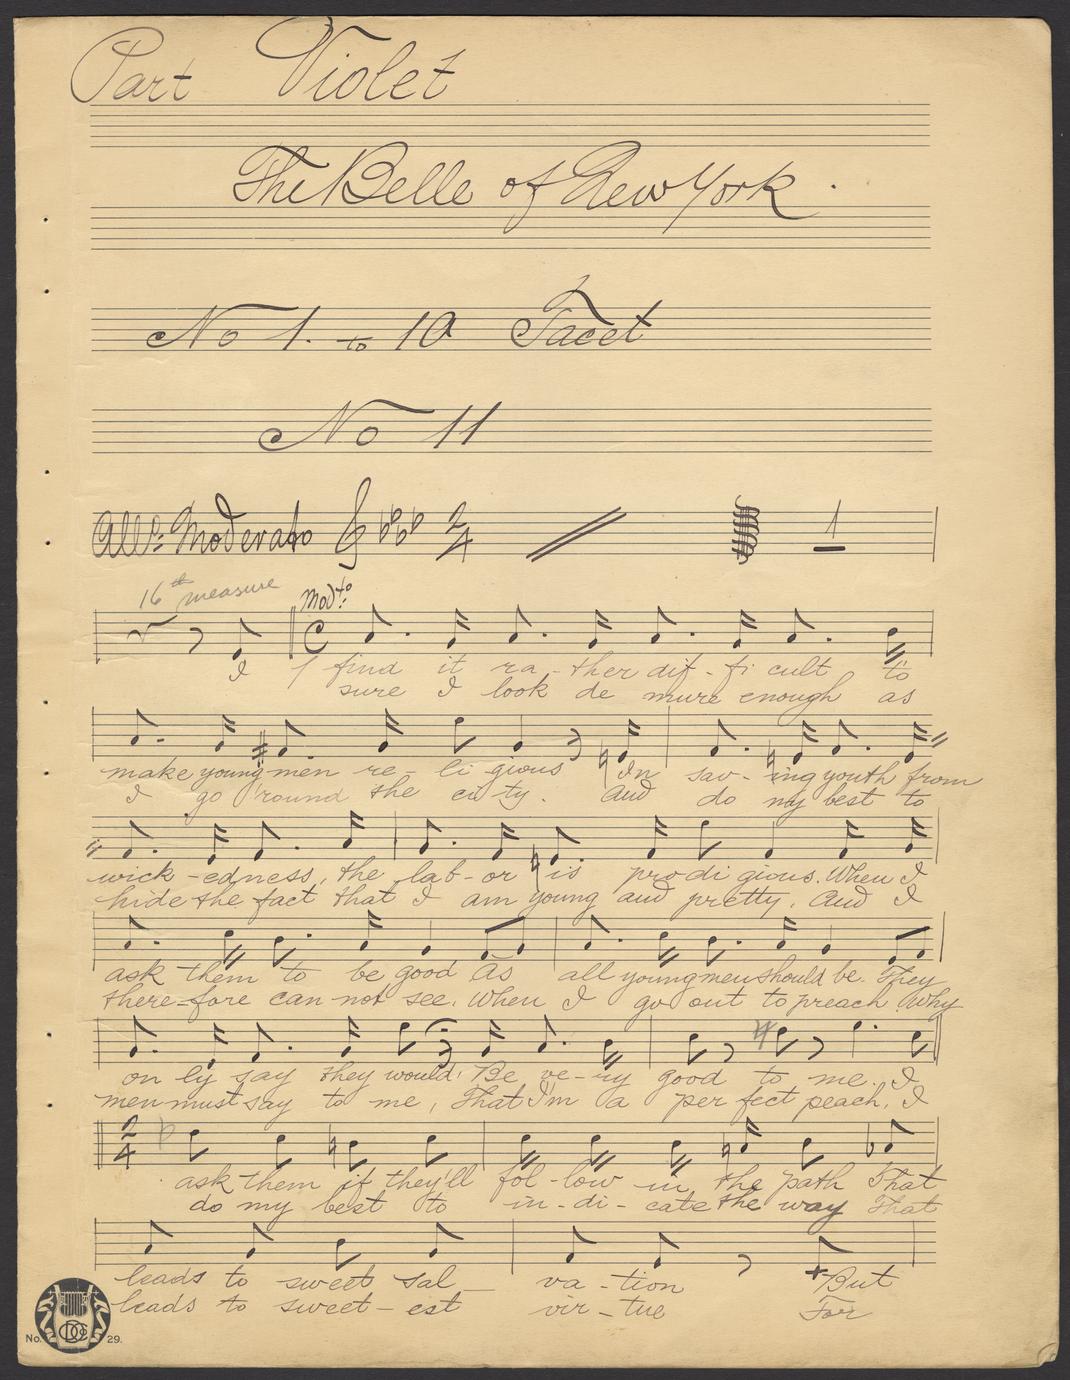 Part Violet
The Belle of New York.
No 1. to 10 Tacet
No 11
All⁰: Moderato 2/4 1
16th measure Modto:
I I find it ra-ther dif-fi cult to
sure I look de mure enough as
make young men re-li gious In sav-ing youth from
I go 'round the ci ty. And do my best to
wick-edness, the lab-or is pro di gious. When I
hide the fact that I am young and pretty. And I
ask them to be good As all young men should be. They
there-fore can not see. When I go out to preach Why
on ly say they would! Be ve-ry good to me. I
men must say to me, That I'm a per fect peach, I
2/4
ask them if they'll fol-low in the path That
do my best to in-di-cate the way That
leads to sweet sal va-tion But
leads to sweet-est vir-tue For
No. 29.